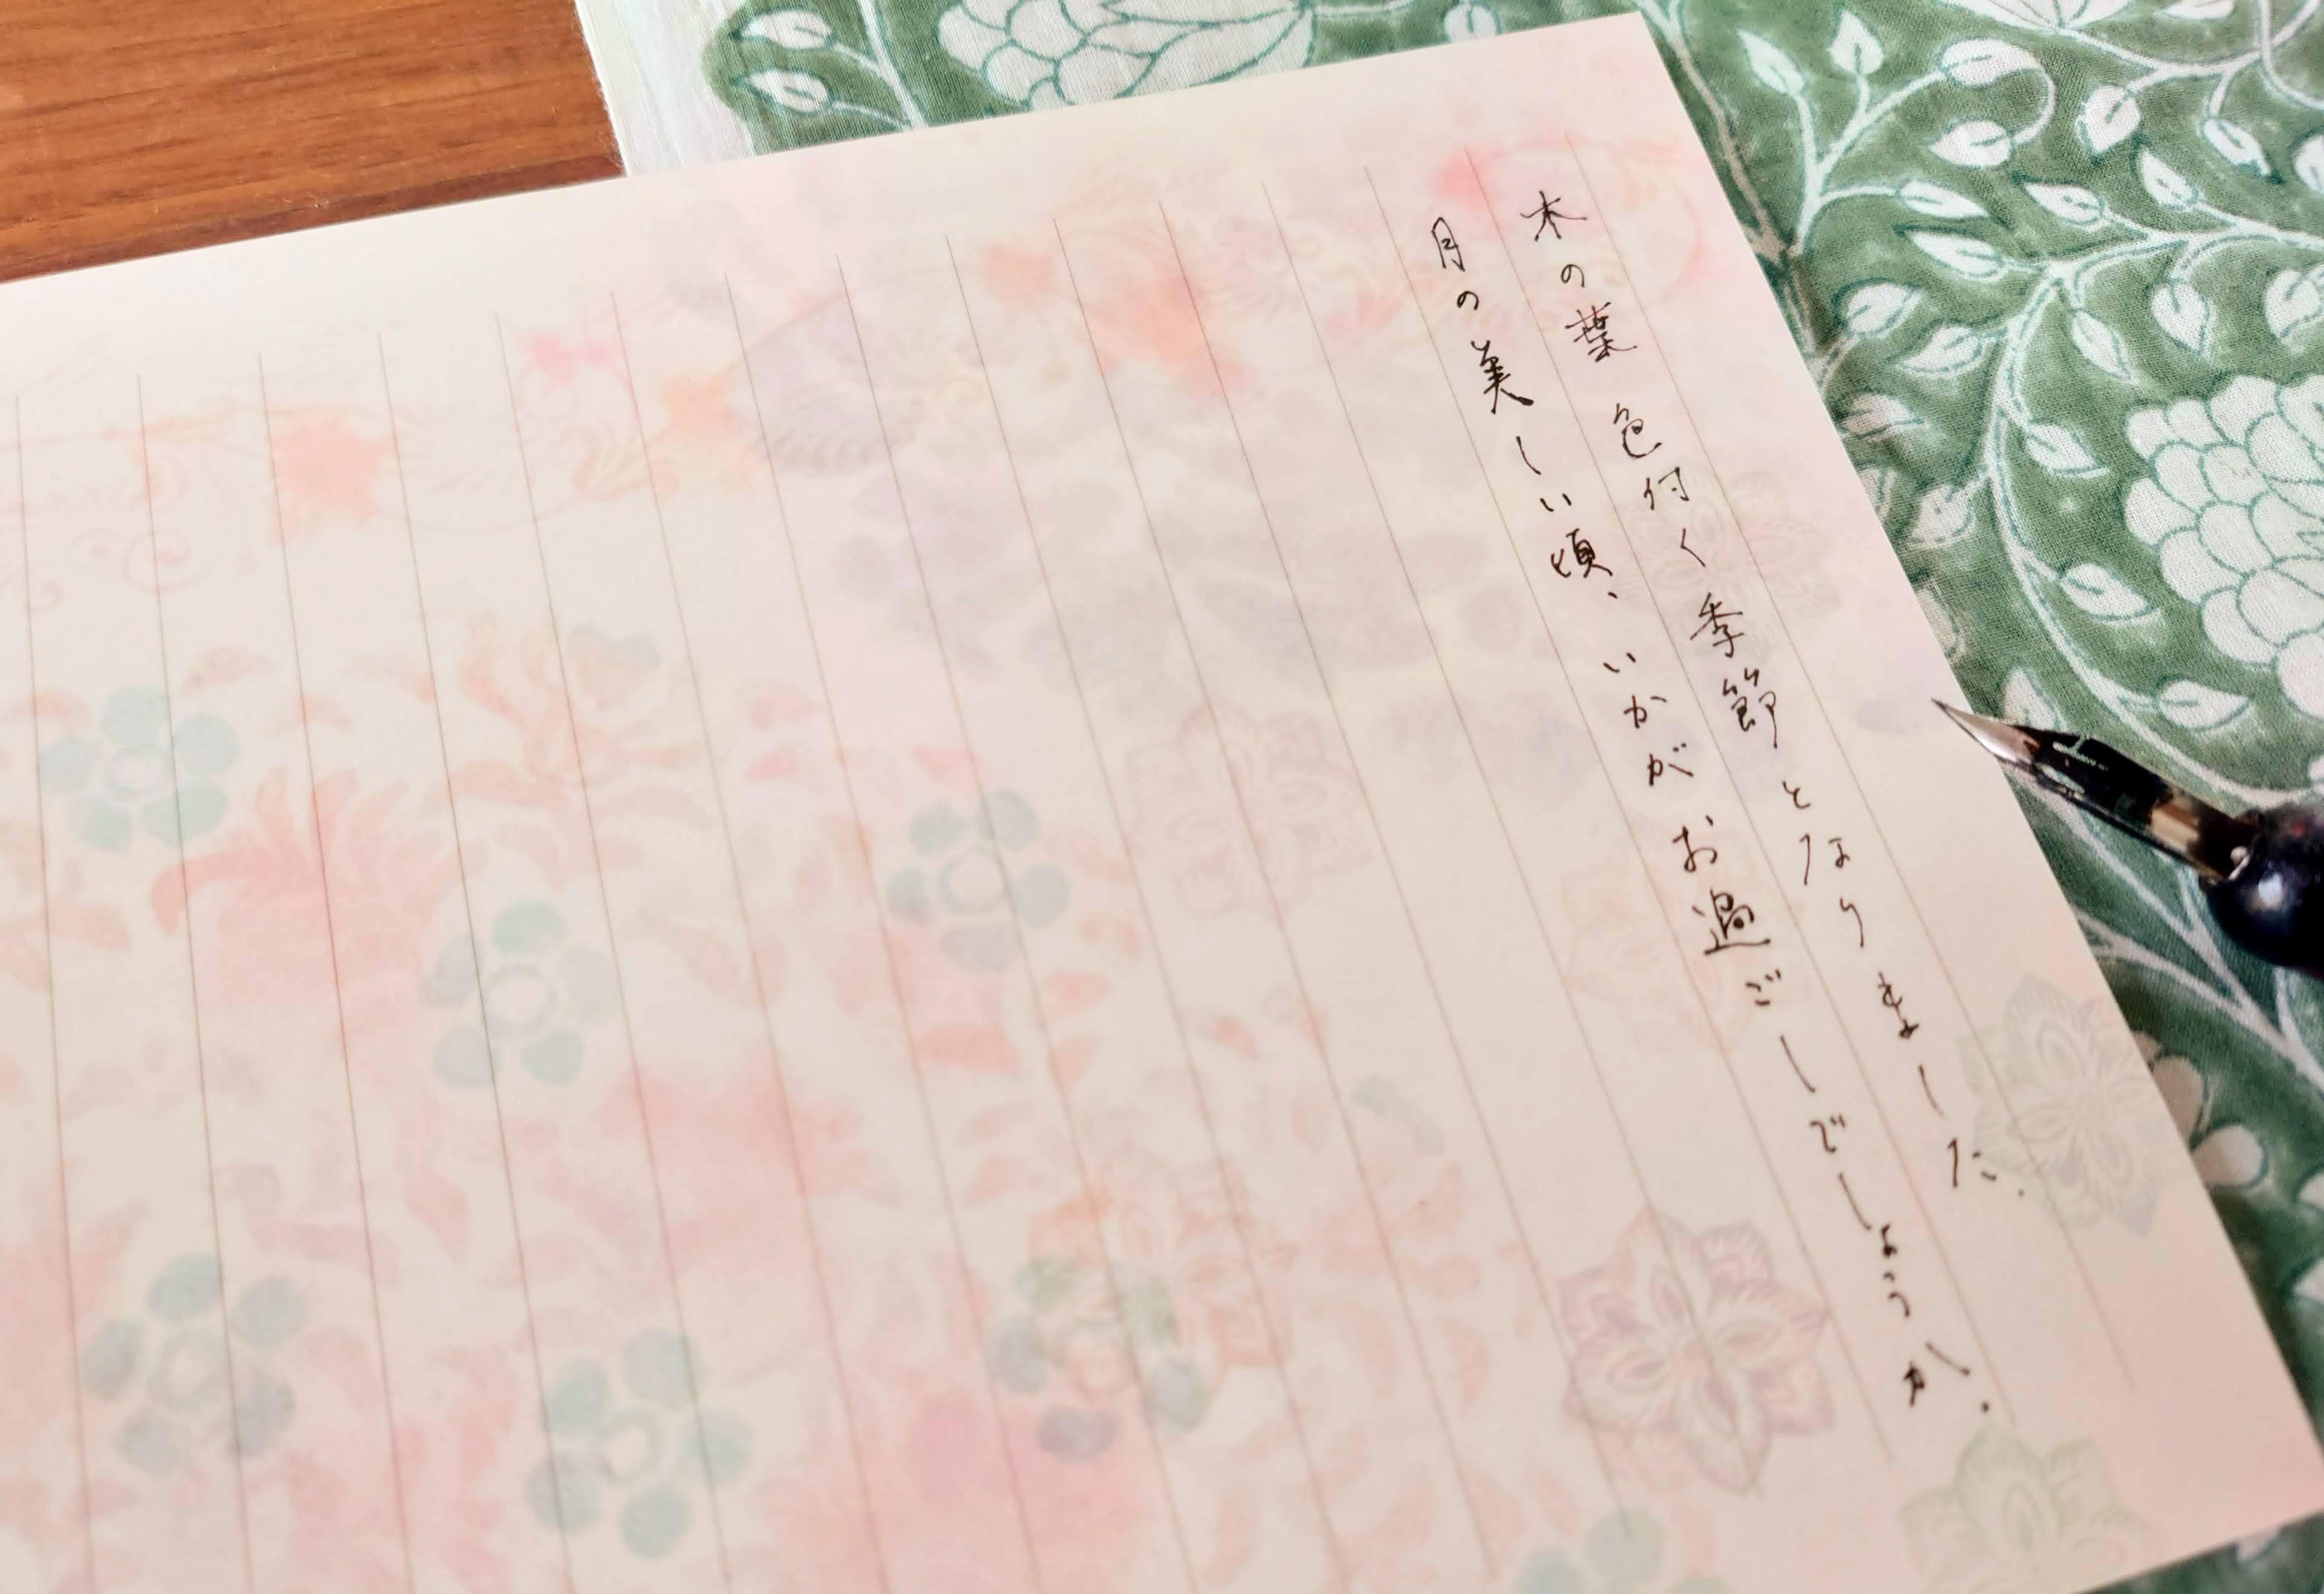 木の葉色付く季節となりました.
月の美しい頃、いかがお過ごしでしょうか.